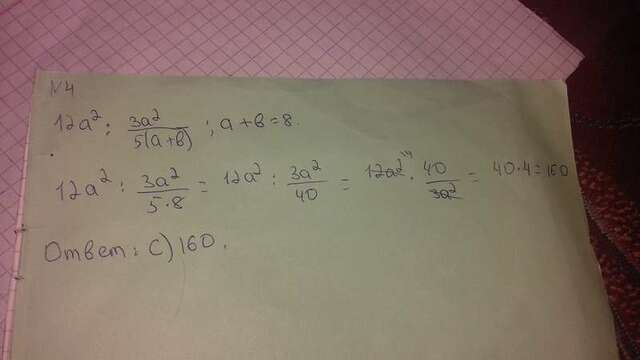 N4
12a² : 3a²/5(a+b) ; a+b=8.
12a² : 3a²/5·8 = 12a² : 3a²/40 = 12a² · 40/3a² = 40·4=160
Ответ: C) 160.